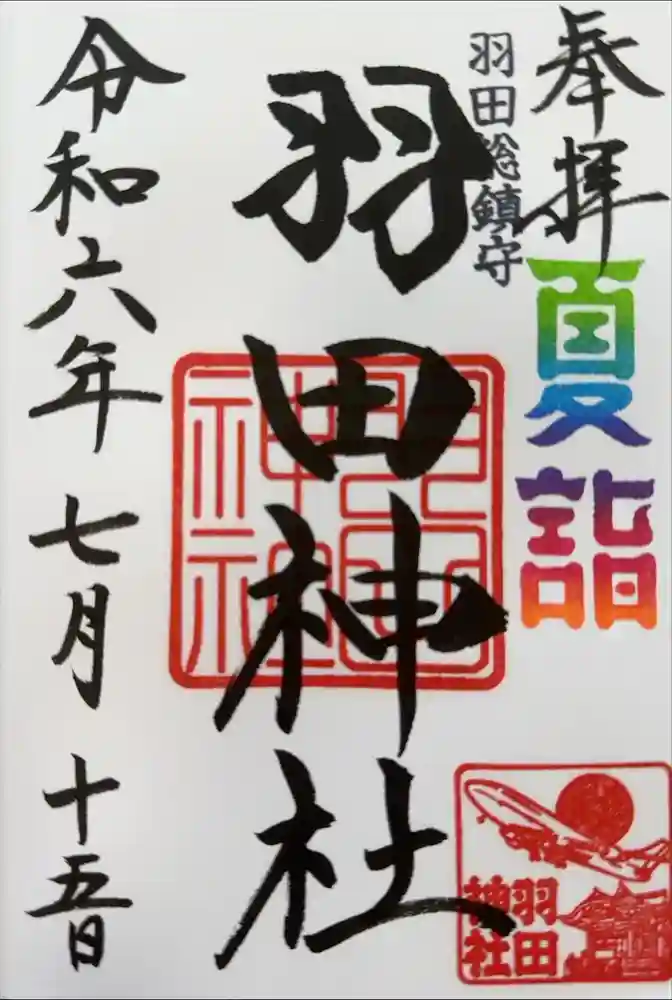 奉拝
夏詣
羽田総鎮守
羽田神社
羽田神社
令和六年七月十五日
羽田
神社